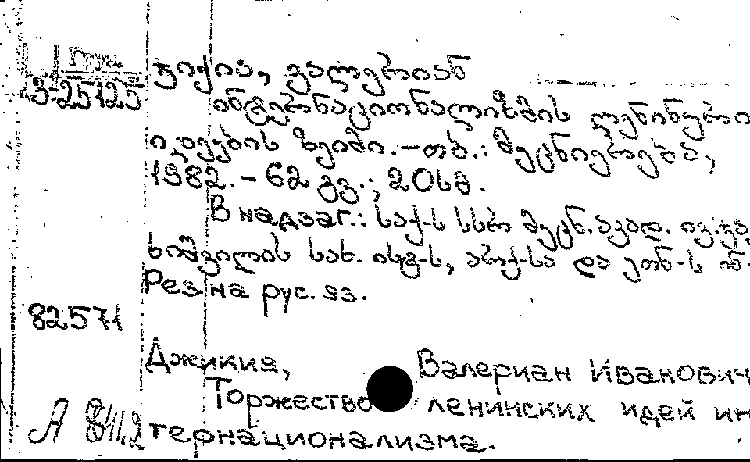 ჯიქია, ვალერიან
3-25125
ინტერნაციონალიზმის ლენინური
იდეების ზეიმი.-თბ.: მეცნიერება,
1982.- 62 გვ.; 20სმ.
В надзаг.: საქ-ს სსრ მეცნ. აკად. ივ. ჯა
ხიშვილის სახ. ისტ-ს, არქ-სა და ეთნ-ს ინ-
Рез на рус. яз.
82571
Джикия, Валериан Иванович
Торжество ленинских идей ин
тернационализма.